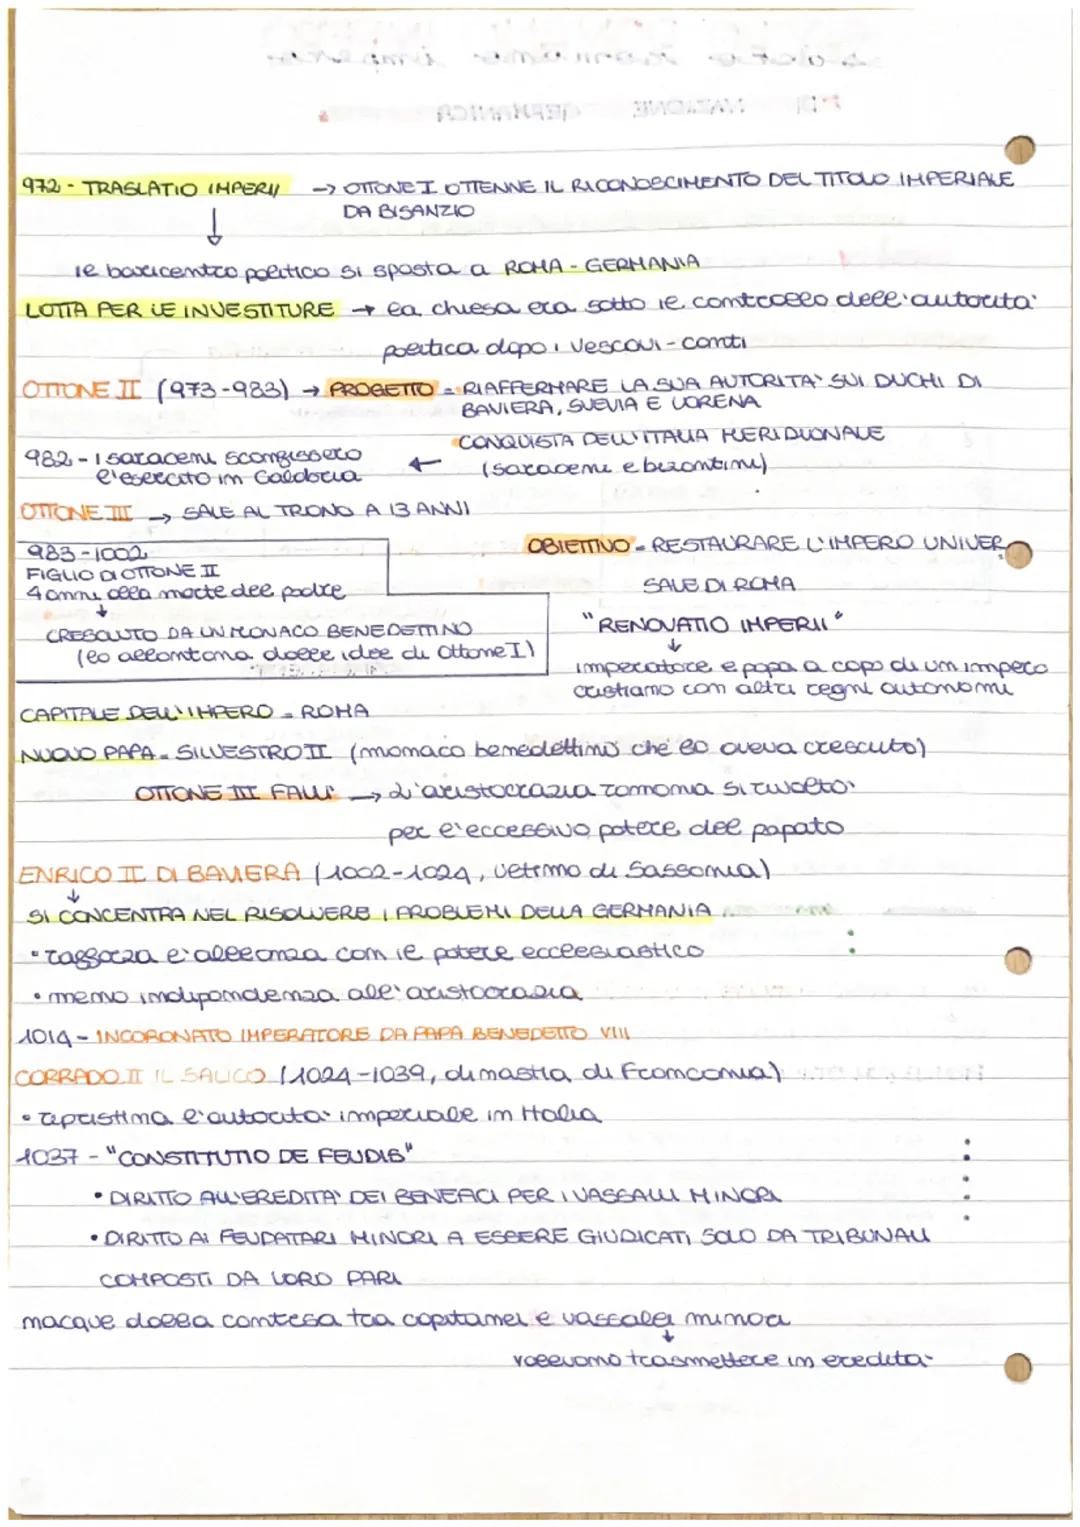 972 - TRASLATIO IMPERII → OTTONE I OTTENNE IL RICONOSCIMENTO DEL TITOLO IMPERIALE
DA BISANZIO
↓
il baricentro politico si sposta a ROMA - GERMANIA
LOTTA PER LE INVESTITURE → la chiesa era sotto il controllo dell'autorità
politica dopo i vescovi-conti
OTTONE II (973-983) → PROGETTO = • RIAFFERMARE LA SUA AUTORITA' SUI DUCHI DI
BAVIERA, SVEVIA E LORENA
• CONQUISTA DELL'ITALIA MERIDIONALE
982 - i saraceni sconfissero ← (saraceni e bizantini)
l'esercito in Calabria
OTTONE III → SALE AL TRONO A 13 ANNI
983-1002 OBIETTIVO = RESTAURARE L'IMPERO UNIVER
FIGLIO DI OTTONE II
4 anni alla morte del padre SALE DI ROMA
↓
CRESCIUTO DA UN MONACO BENEDETTINO "RENOVATIO IMPERII"
(lo allontana dalle idee di Ottone I) ↓
imperatore e papa a capo di un impero
cristiano con altri regni autonomi
CAPITALE DELL'IMPERO = ROMA
NUOVO PAPA = SILVESTRO II (monaco benedettino che lo aveva cresciuto)
OTTONE III FALLI' → L'aristocrazia romana si rivoltò
per l'eccessivo potere del papato
ENRICO II DI BAVIERA (1002-1024, ultimo di Sassonia)
↓
SI CONCENTRA NEL RISOLVERE I PROBLEMI DELLA GERMANIA
• rafforza l'alleanza con il potere ecclesiastico
• meno indipendenza all'aristocrazia
1014 - INCORONATO IMPERATORE DA PAPA BENEDETTO VIII
CORRADO II IL SALICO (1024-1039, dinastia di Franconia)
• ripristina l'autorità imperiale in Italia
1037 - "CONSTITUTIO DE FEUDIS"
• DIRITTO ALL'EREDITA' DEI BENEFICI PER I VASSALLI MINORI
• DIRITTO AI FEUDATARI MINORI A ESSERE GIUDICATI SOLO DA TRIBUNALI
COMPOSTI DA LORO PARI
nacque dalla contesa tra capitanei e vassalli minori
↓
volevano trasmettere in eredità